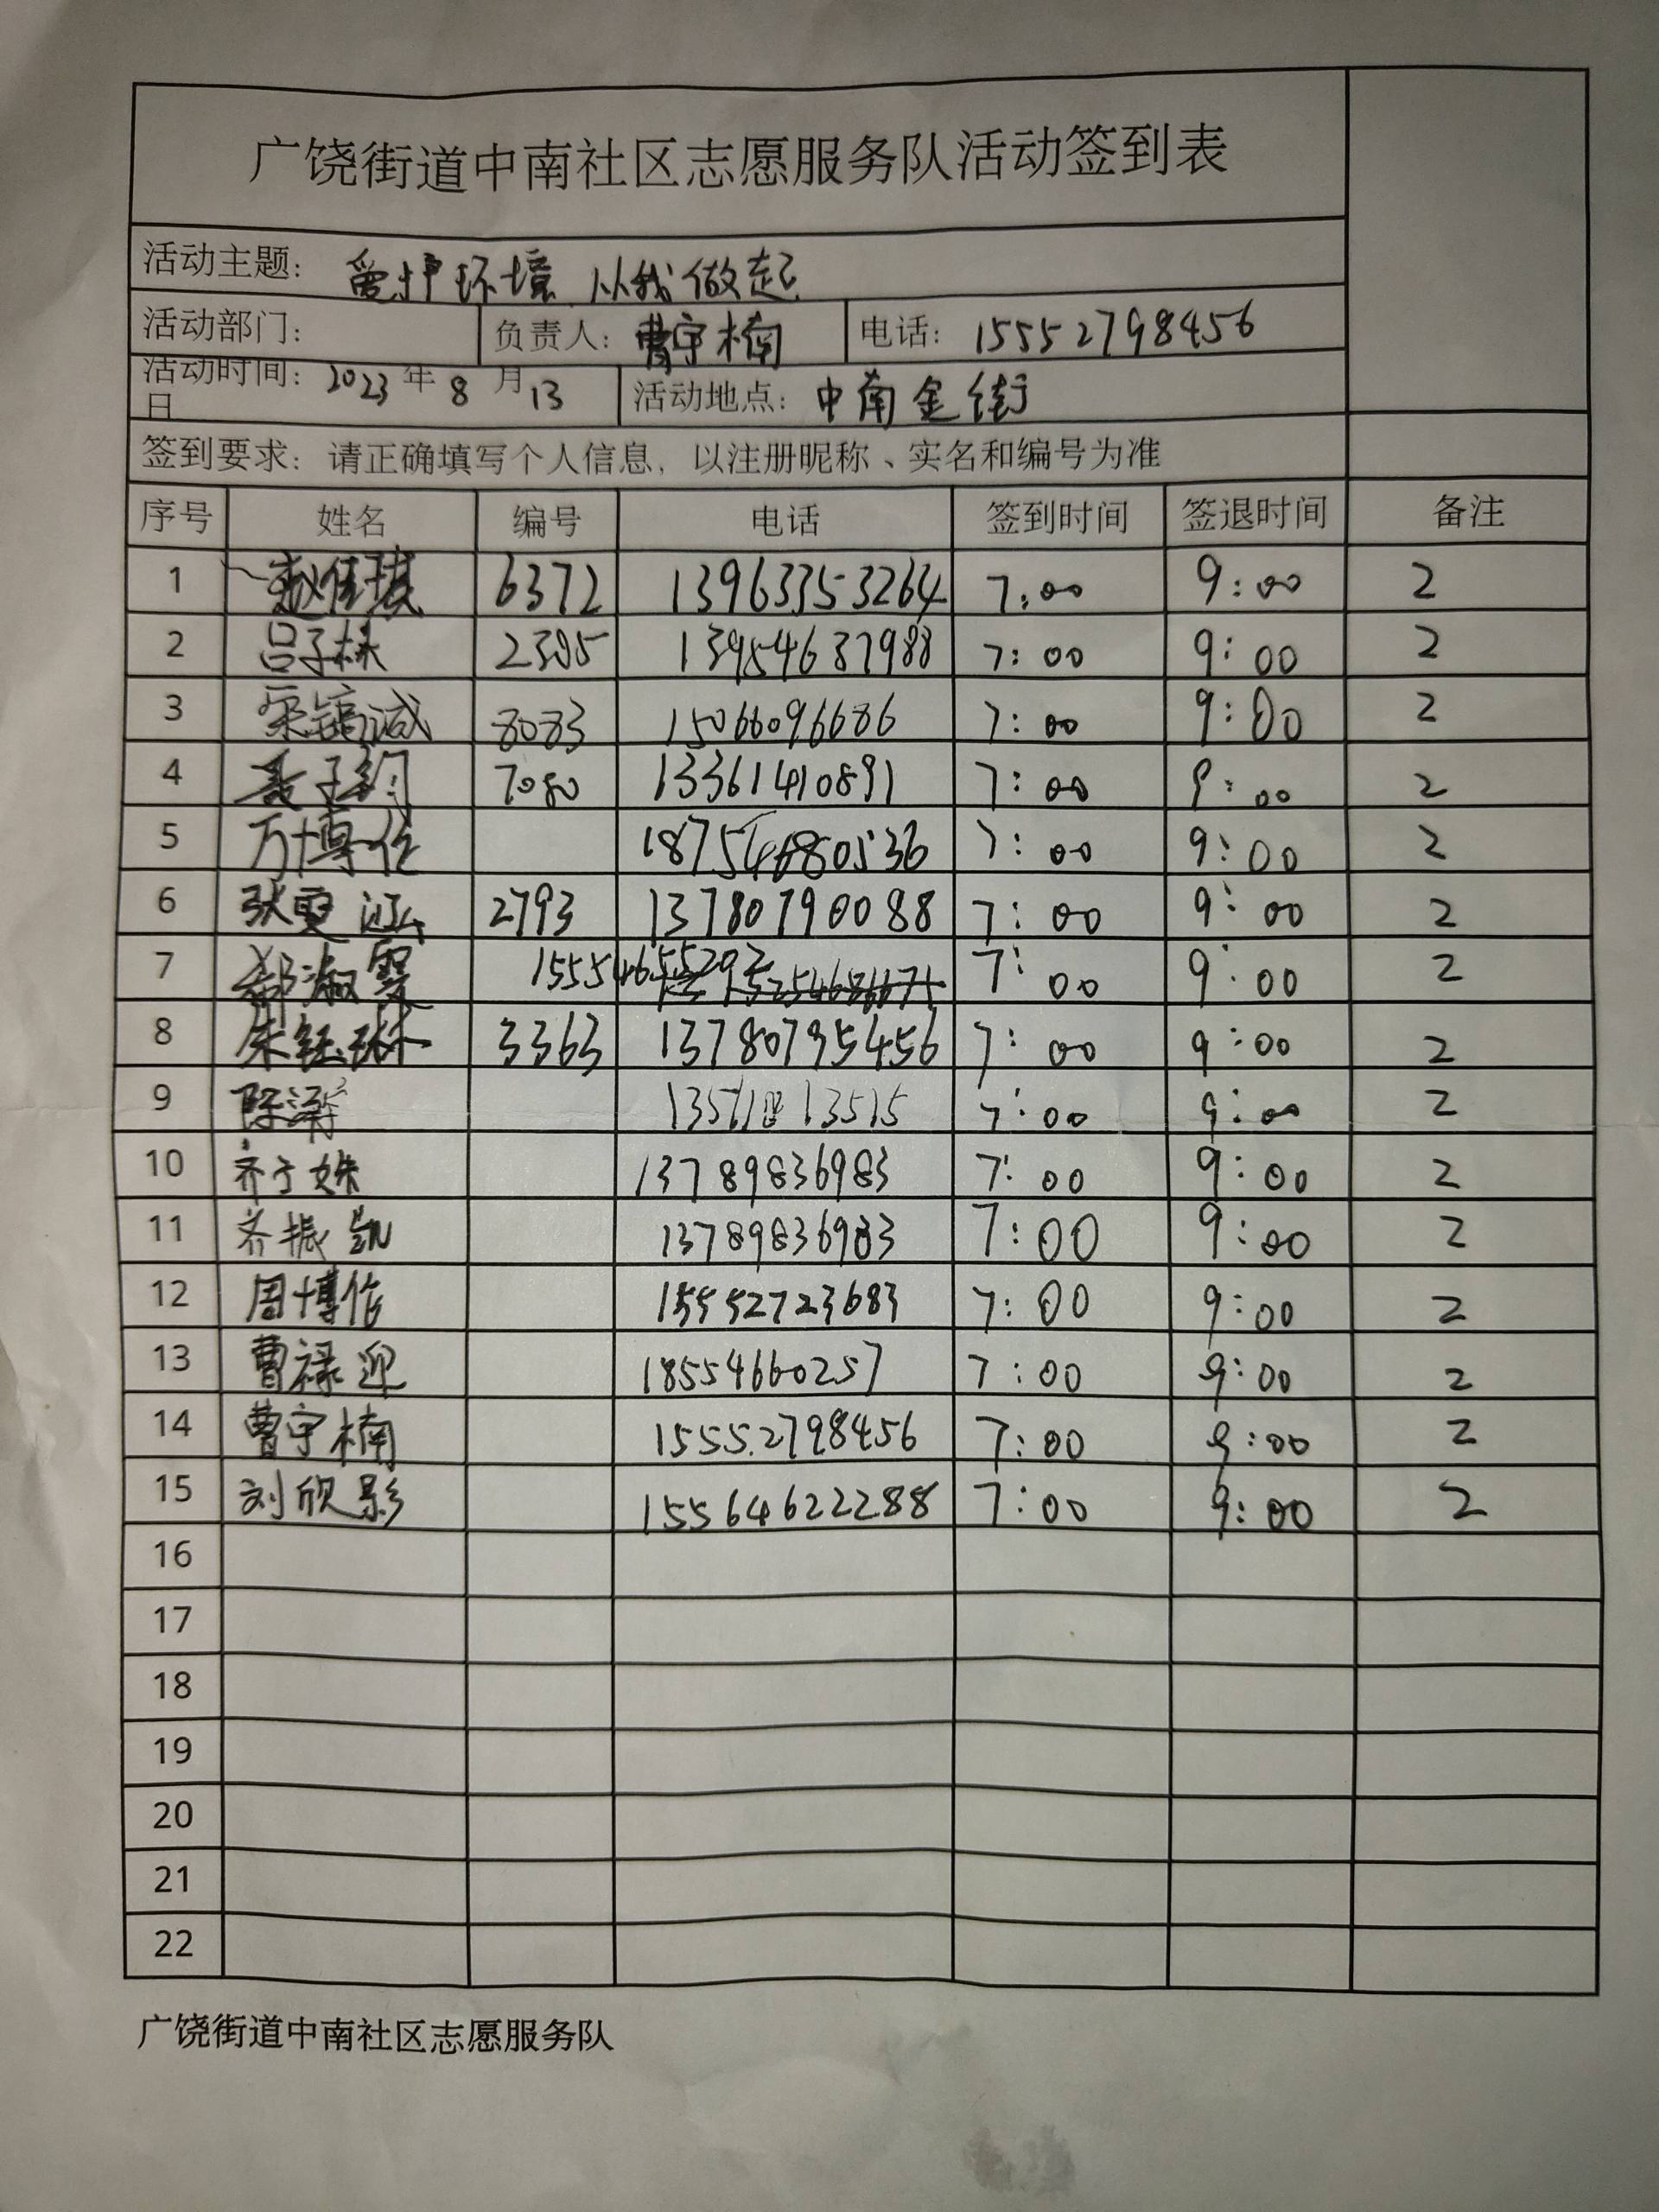 广饶街道中南社区志愿服务队活动签到表
活动主题： 爱护环境 从我做起
活动部门： 负责人：曹宇楠 电话：15552798456
活动时间：2023年8月13日 活动地点：中南金街
签到要求：请正确填写个人信息，以注册昵称、实名和编号为准
序号 姓名 编号 电话 签到时间 签退时间 备注
1 赵佳琪 6372 13963353264 7:00 9:00 2
2 吕子林 2395 13954637988 7:00 9:00 2
3 8083 15066096686 7:00 9:00 2
4 7080 13361410891 7:00 9:00 2
5 万博 7:00 9:00 2
6 张雯 2793 13780790088 7:00 9:00 2
7 郝淑雯 7:00 9:00 2
8 朱钰琳 3363 13780795456 7:00 9:00 2
9 7:00 9:00 2
10 齐于姝 13789836983 7:00 9:00 2
11 齐振凯 13789836983 7:00 9:00 2
12 周博 15552723683 7:00 9:00 2
13 曹禄迎 18554660257 7:00 9:00 2
14 曹宇楠 15552798456 7:00 9:00 2
15 刘欣影 15564622288 7:00 9:00 2
16
17
18
19
20
21
22
广饶街道中南社区志愿服务队